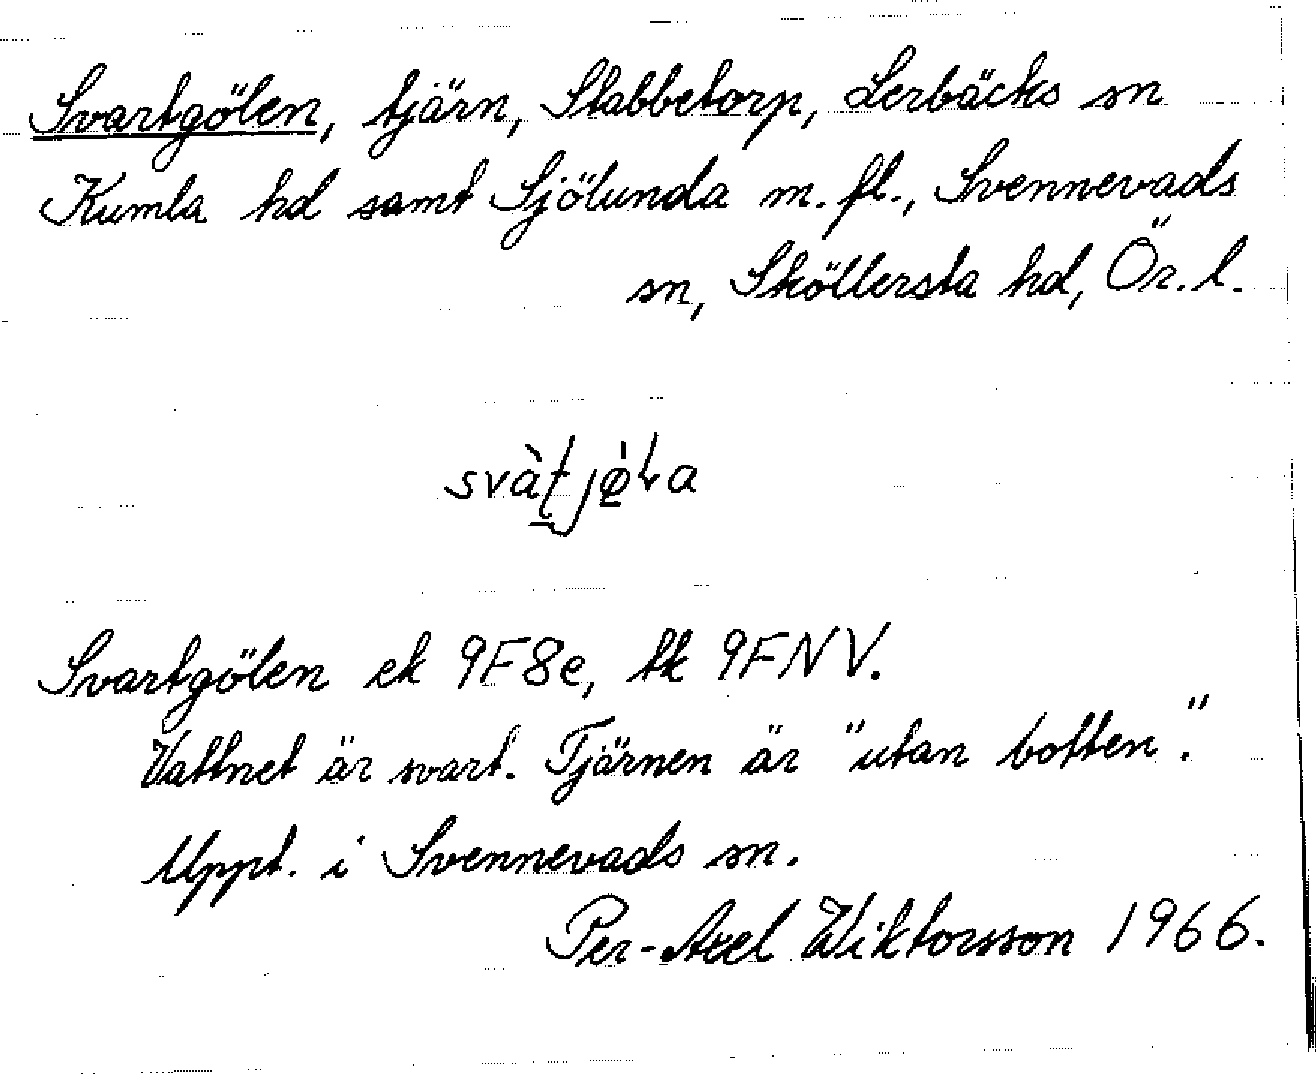 Svartgölen, tjärn, Stabbetorp, Lerbäcks sn
Kumla hd samt Sjölunda m. fl., Svennevads
sn, Sköllersta hd, Ör. l.
Svartgölen ek 9F8e, tk 9FNV.
Vattnet är svart. Tjärnen är "utan botten".
Uppt. i Svennevads sn.
Per-Axel Wiktorsson 1966.